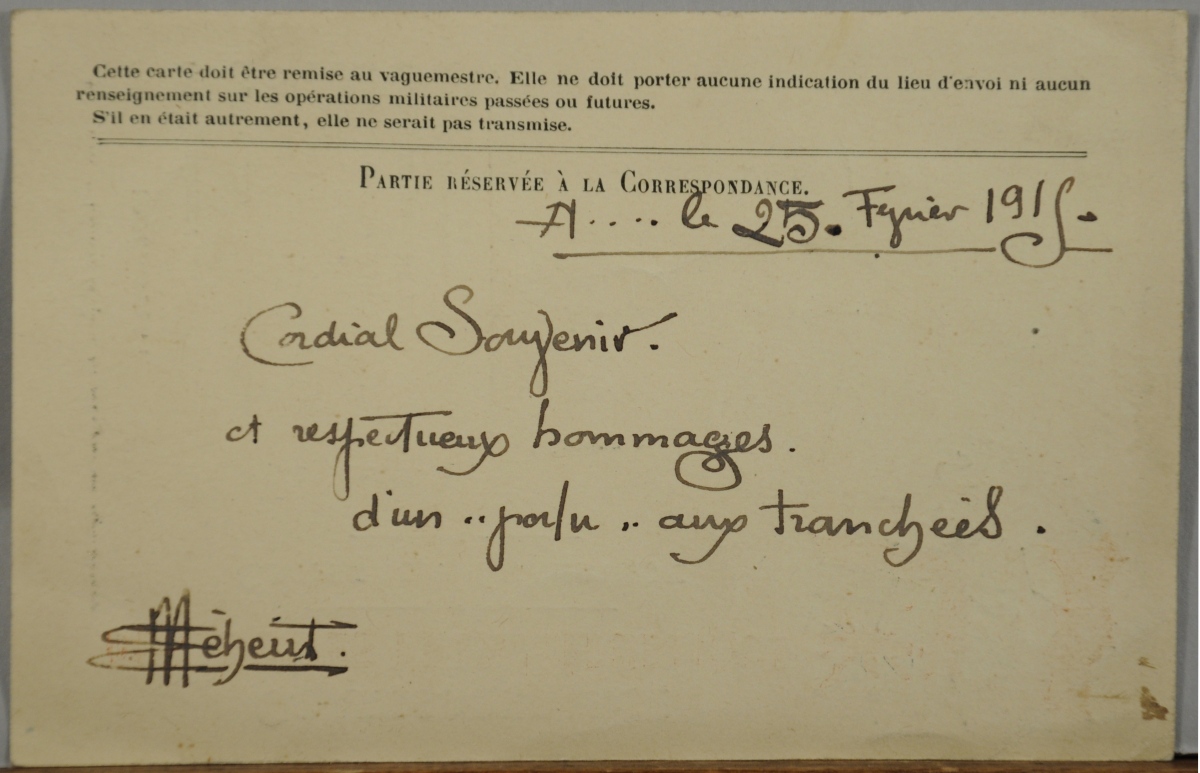 Cette carte doit être remise au vaguemestre. Elle ne doit porter aucune indication du lieu d'envoi ni aucun
renseignement sur les opérations militaires passées ou futures.
S'il en était autrement, elle ne serait pas transmise.
PARTIE RÉSERVÉE À LA CORRESPONDANCE.
A.... le 25. Fevrier 1915.
Cordial Souvenir.
et respectueux hommages.
d'un "poilu" aux tranchées.
Méheut.